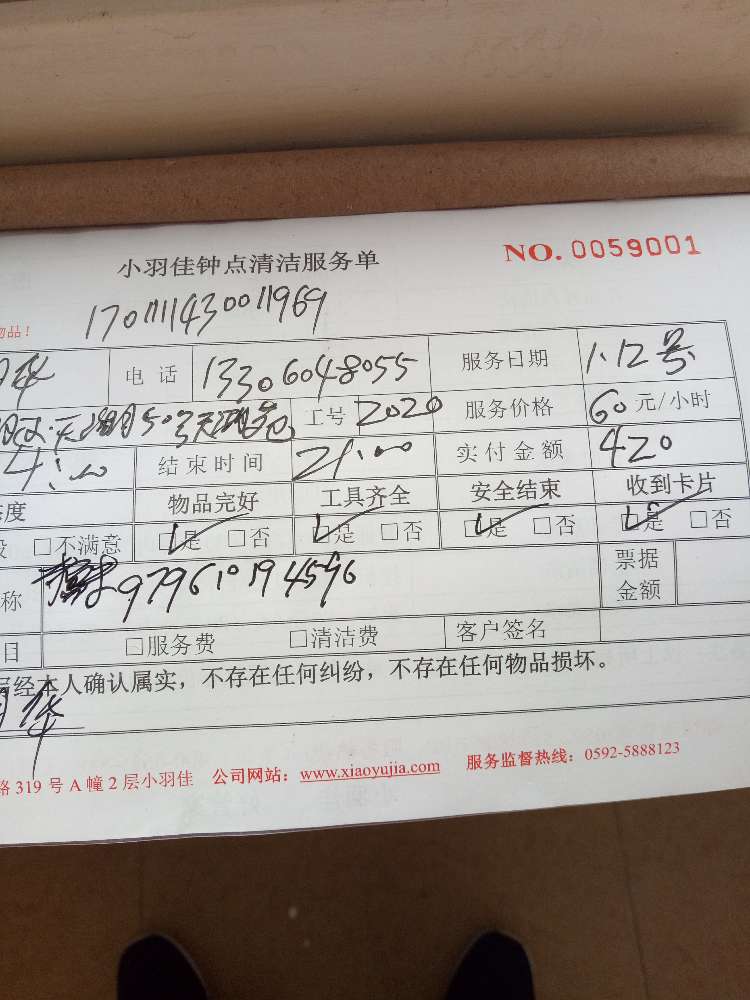 小羽佳钟点清洁服务单 NO. 0059001
物品！
170111143001 1969
华 电话 13306048055 服务日期 1.12号
503 工号 2020 服务价格 60元/小时
4:00 结束时间 21:00 实付金额 420
度 物品完好 工具齐全 安全结束 收到卡片
□不满意 □是 □否 □是 □否 □是 □否 □是 □否
称 979610194596 票据金额
目 □服务费 □清洁费 客户签名
经本人确认属实，不存在任何纠纷，不存在任何物品损坏。
华
路319号A幢2层小羽佳 公司网站：www.xiaoyujia.com 服务监督热线：0592-5888123